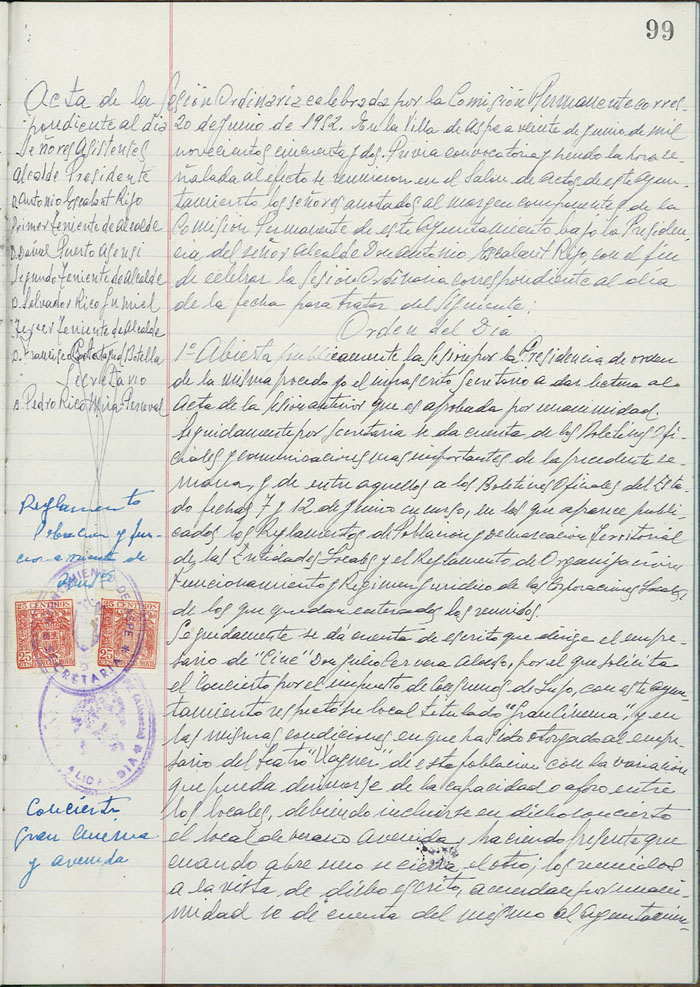 99
Acta de la Sesión Ordinaria celebrada por la Comisión Permanente corres-
pondiente al día 20 de Junio de 1952. En la Villa de Aspe a veinte de Junio de mil
novecientos cincuenta y dos. Previa convocatoria y siendo la hora se-
ñalada al efecto se reunieron en el Salon de Actos de este Ayun-
tamiento, los señores anotados al margen componentes de la
Comisión Permanente de este Ayuntamiento bajo la Presiden-
cia del señor Alcalde Don Antonio Escalant Rifo, con el fin
de celebrar la Sesión Ordinaria correspondiente al día
de la fecha para tratar del siguiente:
Orden del Dia
Señores Asistentes
Alcalde Presidente
D. Antonio Escalant Rifo
Primer Teniente de Alcalde
D. Daniel Puerto
Segundo Teniente de Alcalde
D. Salvador Rico
Tercer Teniente de Alcalde
D. Francisco Botella
Secretario
D. Pedro Rico Mira-Perceval
1º Abierta publicamente la Sesión por la Presidencia de orden
de la misma procedo yo el infrascrito Secretario a dar lectura al
Acta de la sesion anterior que es aprobada por unanimidad.
Seguidamente por Secretaria se da cuenta de los Boletines Ofi-
ciales y comunicaciones mas importantes de la precedente se-
mana, y de entre aquellos a los Boletines Oficiales del Esta-
do fechas 7 y 12 de Junio en curso, en los que aparece publi-
cados los Reglamentos de Poblacion y Demarcacion Territorial
de las Entidades Locales y el Reglamento de Organización
Funcionamiento y Regimen Juridico de las Corporaciones Locales,
de los que quedan enterados los reunidos.
Reglamento
Poblacion y fun-
cionamiento de
AYUNTAMIENTO DE ASPE
SECRETARIA
25 CENTIMOS
25 CENTIMOS
ALCALDIA
Seguidamente se da cuenta de escrito que dirige el empre-
sario de "Cine" Don Julio Cervera Alonso, por el que solicita
el Concierto por el impuesto de Consumos de Lujo, con este Ayun-
tamiento respecto su local titulado "Gran Cinema", y en
las mismas condiciones en que ha sido otorgado al empre-
sario del Teatro "Wagner" de esta poblacion con la variacion
que pueda dimanarse de la capacidad o aforo entre
los locales, debiendo incluirse en dicho concierto
el local de verano Avenida y haciendo presente que
cuando abre uno se cierra el otro; los reunidos
a la vista de dicho escrito, acuerdan por unani-
midad se de cuenta del mismo al Ayuntamien-
Concierto
Gran Cinema
y avenida